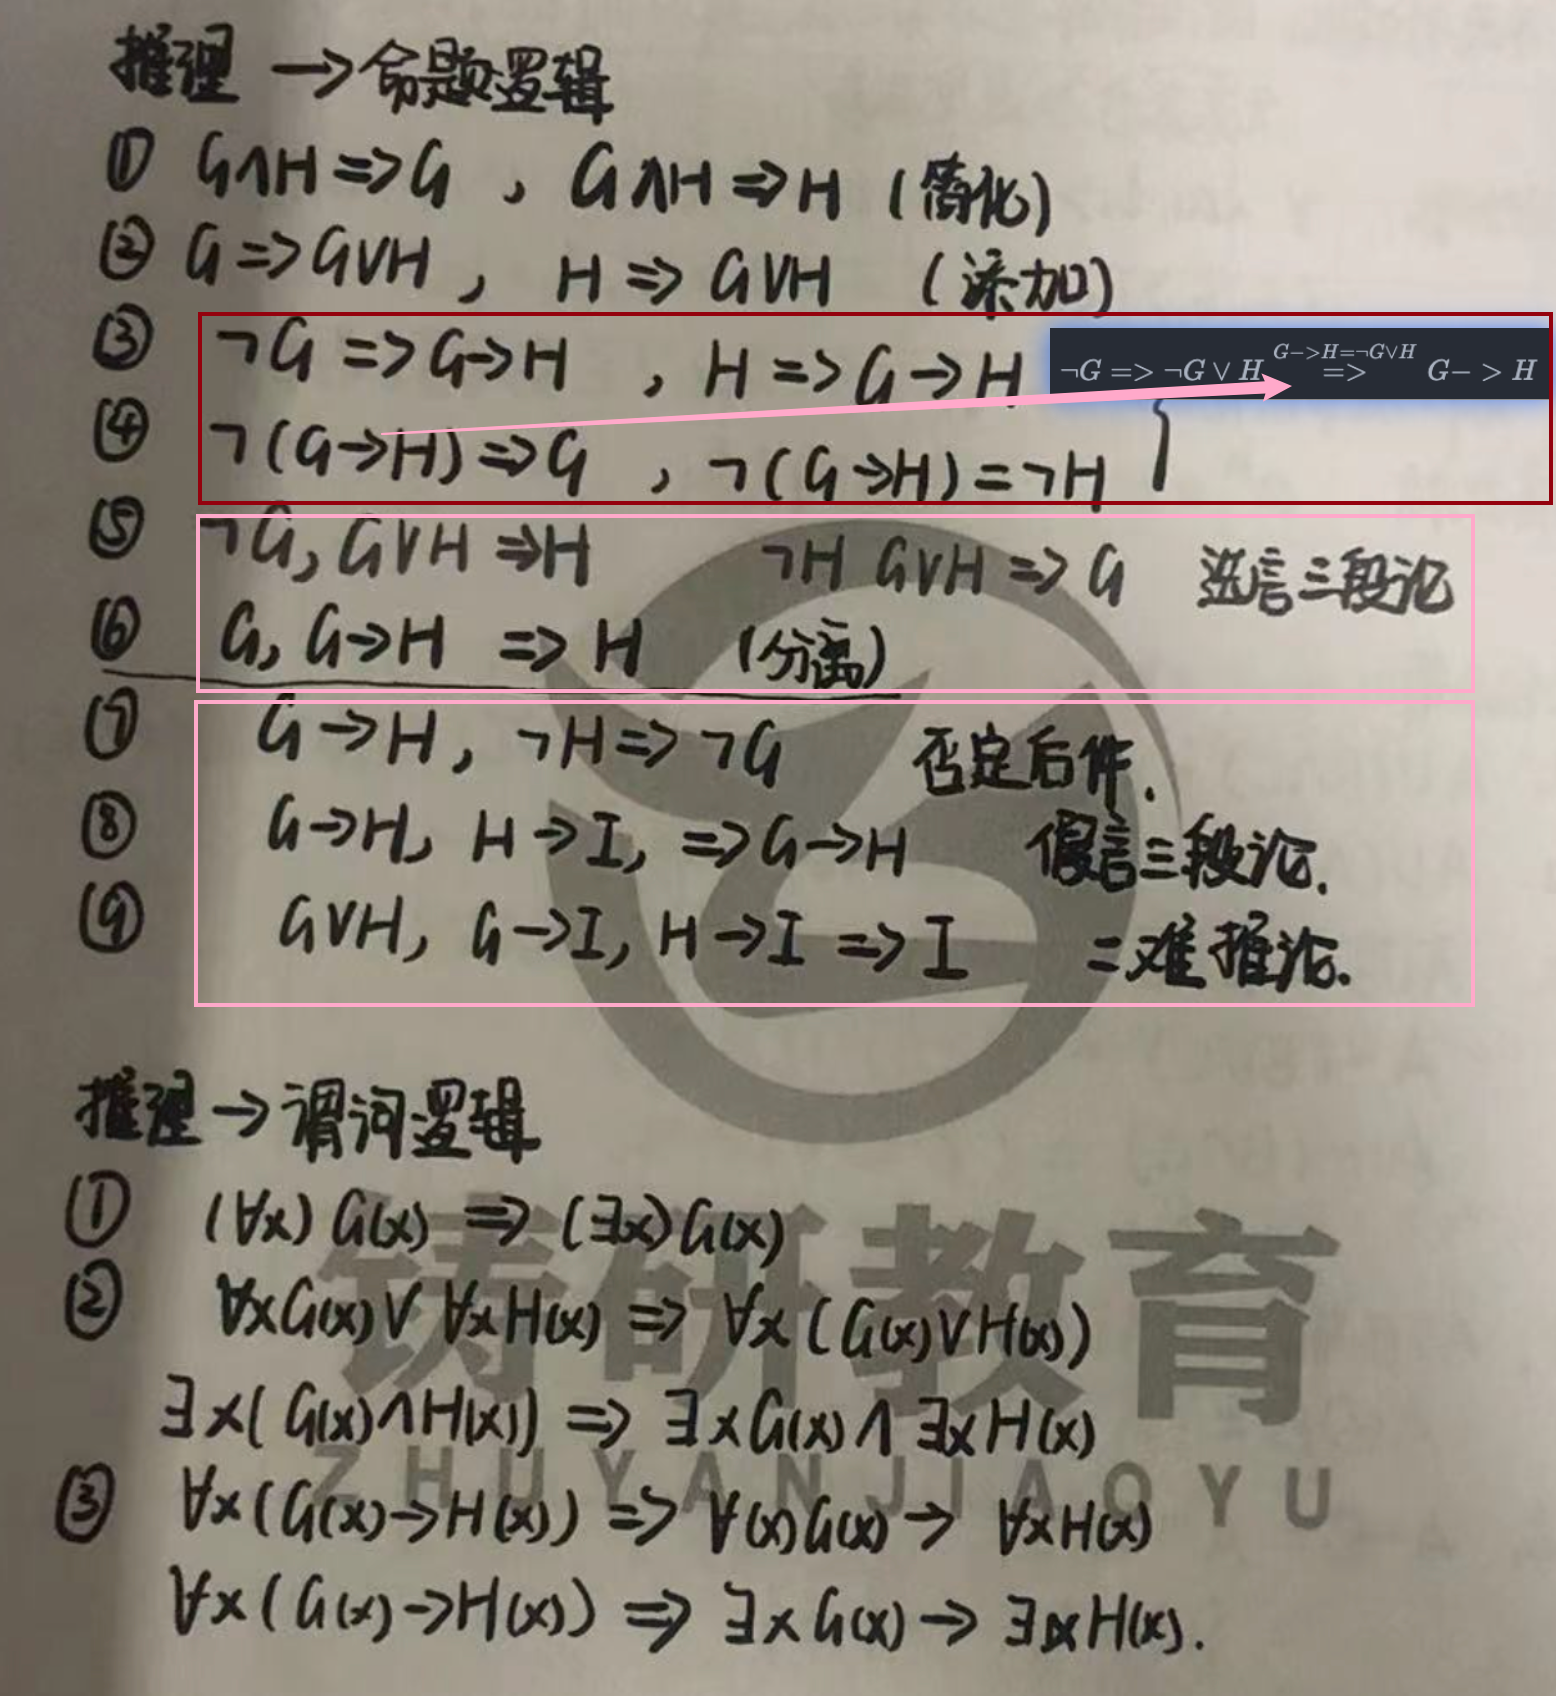 推理 → 命题逻辑
① G∧H => G , G∧H => H (简化)
② G => G∨H , H => G∨H (添加)
③ ¬G => G→H , H => G→H
¬G => ¬G ∨ H G->H=¬G∨H => G-> H
④ ¬(G→H) => G , ¬(G→H) = ¬H
⑤ ¬G, G∨H => H ¬H G∨H => G 选言三段论
⑥ G, G→H => H (分离)
⑦ G→H, ¬H => ¬G 否定后件.
⑧ G→H, H→I, => G→H 假言三段论.
⑨ G∨H, G→I, H→I => I 二难推论.
推理 → 谓词逻辑
① (∀x) G(x) => (∃x) G(x)
② ∀xG(x) ∨ ∀xH(x) => ∀x (G(x)∨H(x))
∃x( G(x)∧H(x)) => ∃xG(x) ∧ ∃xH(x)
③ ∀x(G(x)→H(x)) => ∀(x)G(x) → ∀xH(x)
∀x(G(x)→H(x)) => ∃xG(x) → ∃xH(x).
铸研教育
ZHUYANJIAOYU